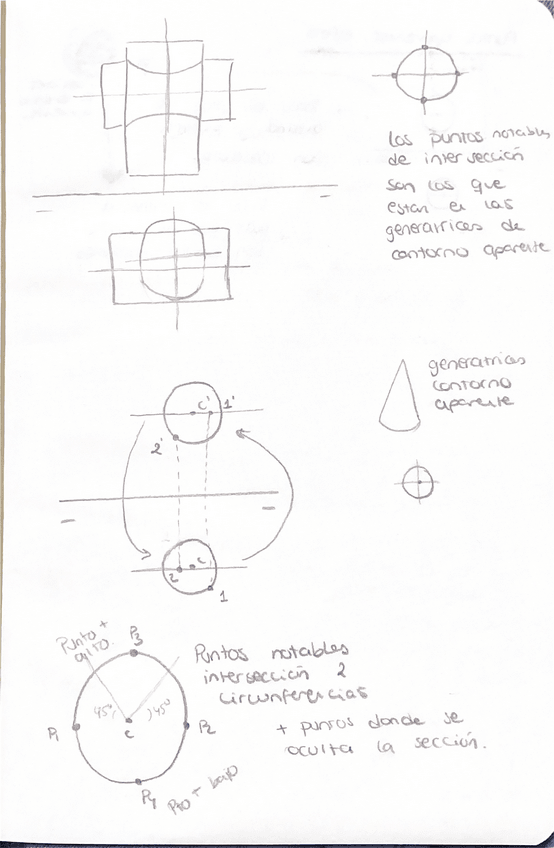 los puntos notables
de intersección
son los que
estan en las
generatrices de
contorno aparente
generatrices
contorno
aparente
c' 1'
2'
2 c
1
Punto +
alto.
P3
Puntos notables
intersección 2
circunferencias
45° 45°
c
P1
P2
+ puntos donde se
oculta la sección.
P4
Pto - bajo